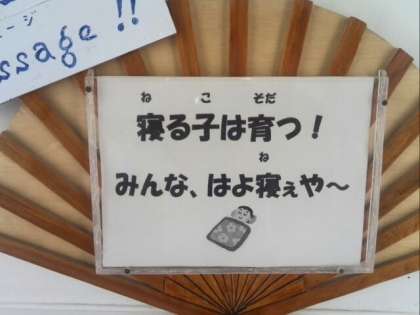 ージ
ssage !!
ね こ そだ
寝る子は育つ！
ね
みんな、はよ寝ぇや～